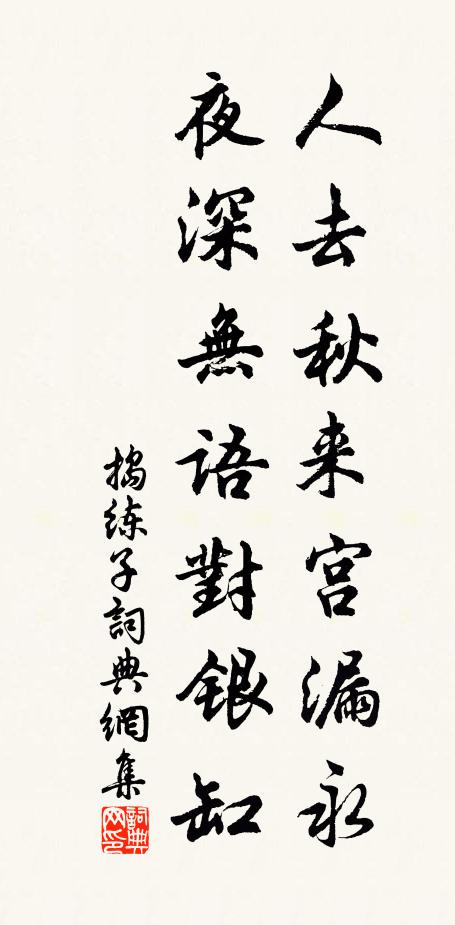 人去秋来宫漏永
夜深無語對銀缸
搗练子詞典網集
詞典
网印